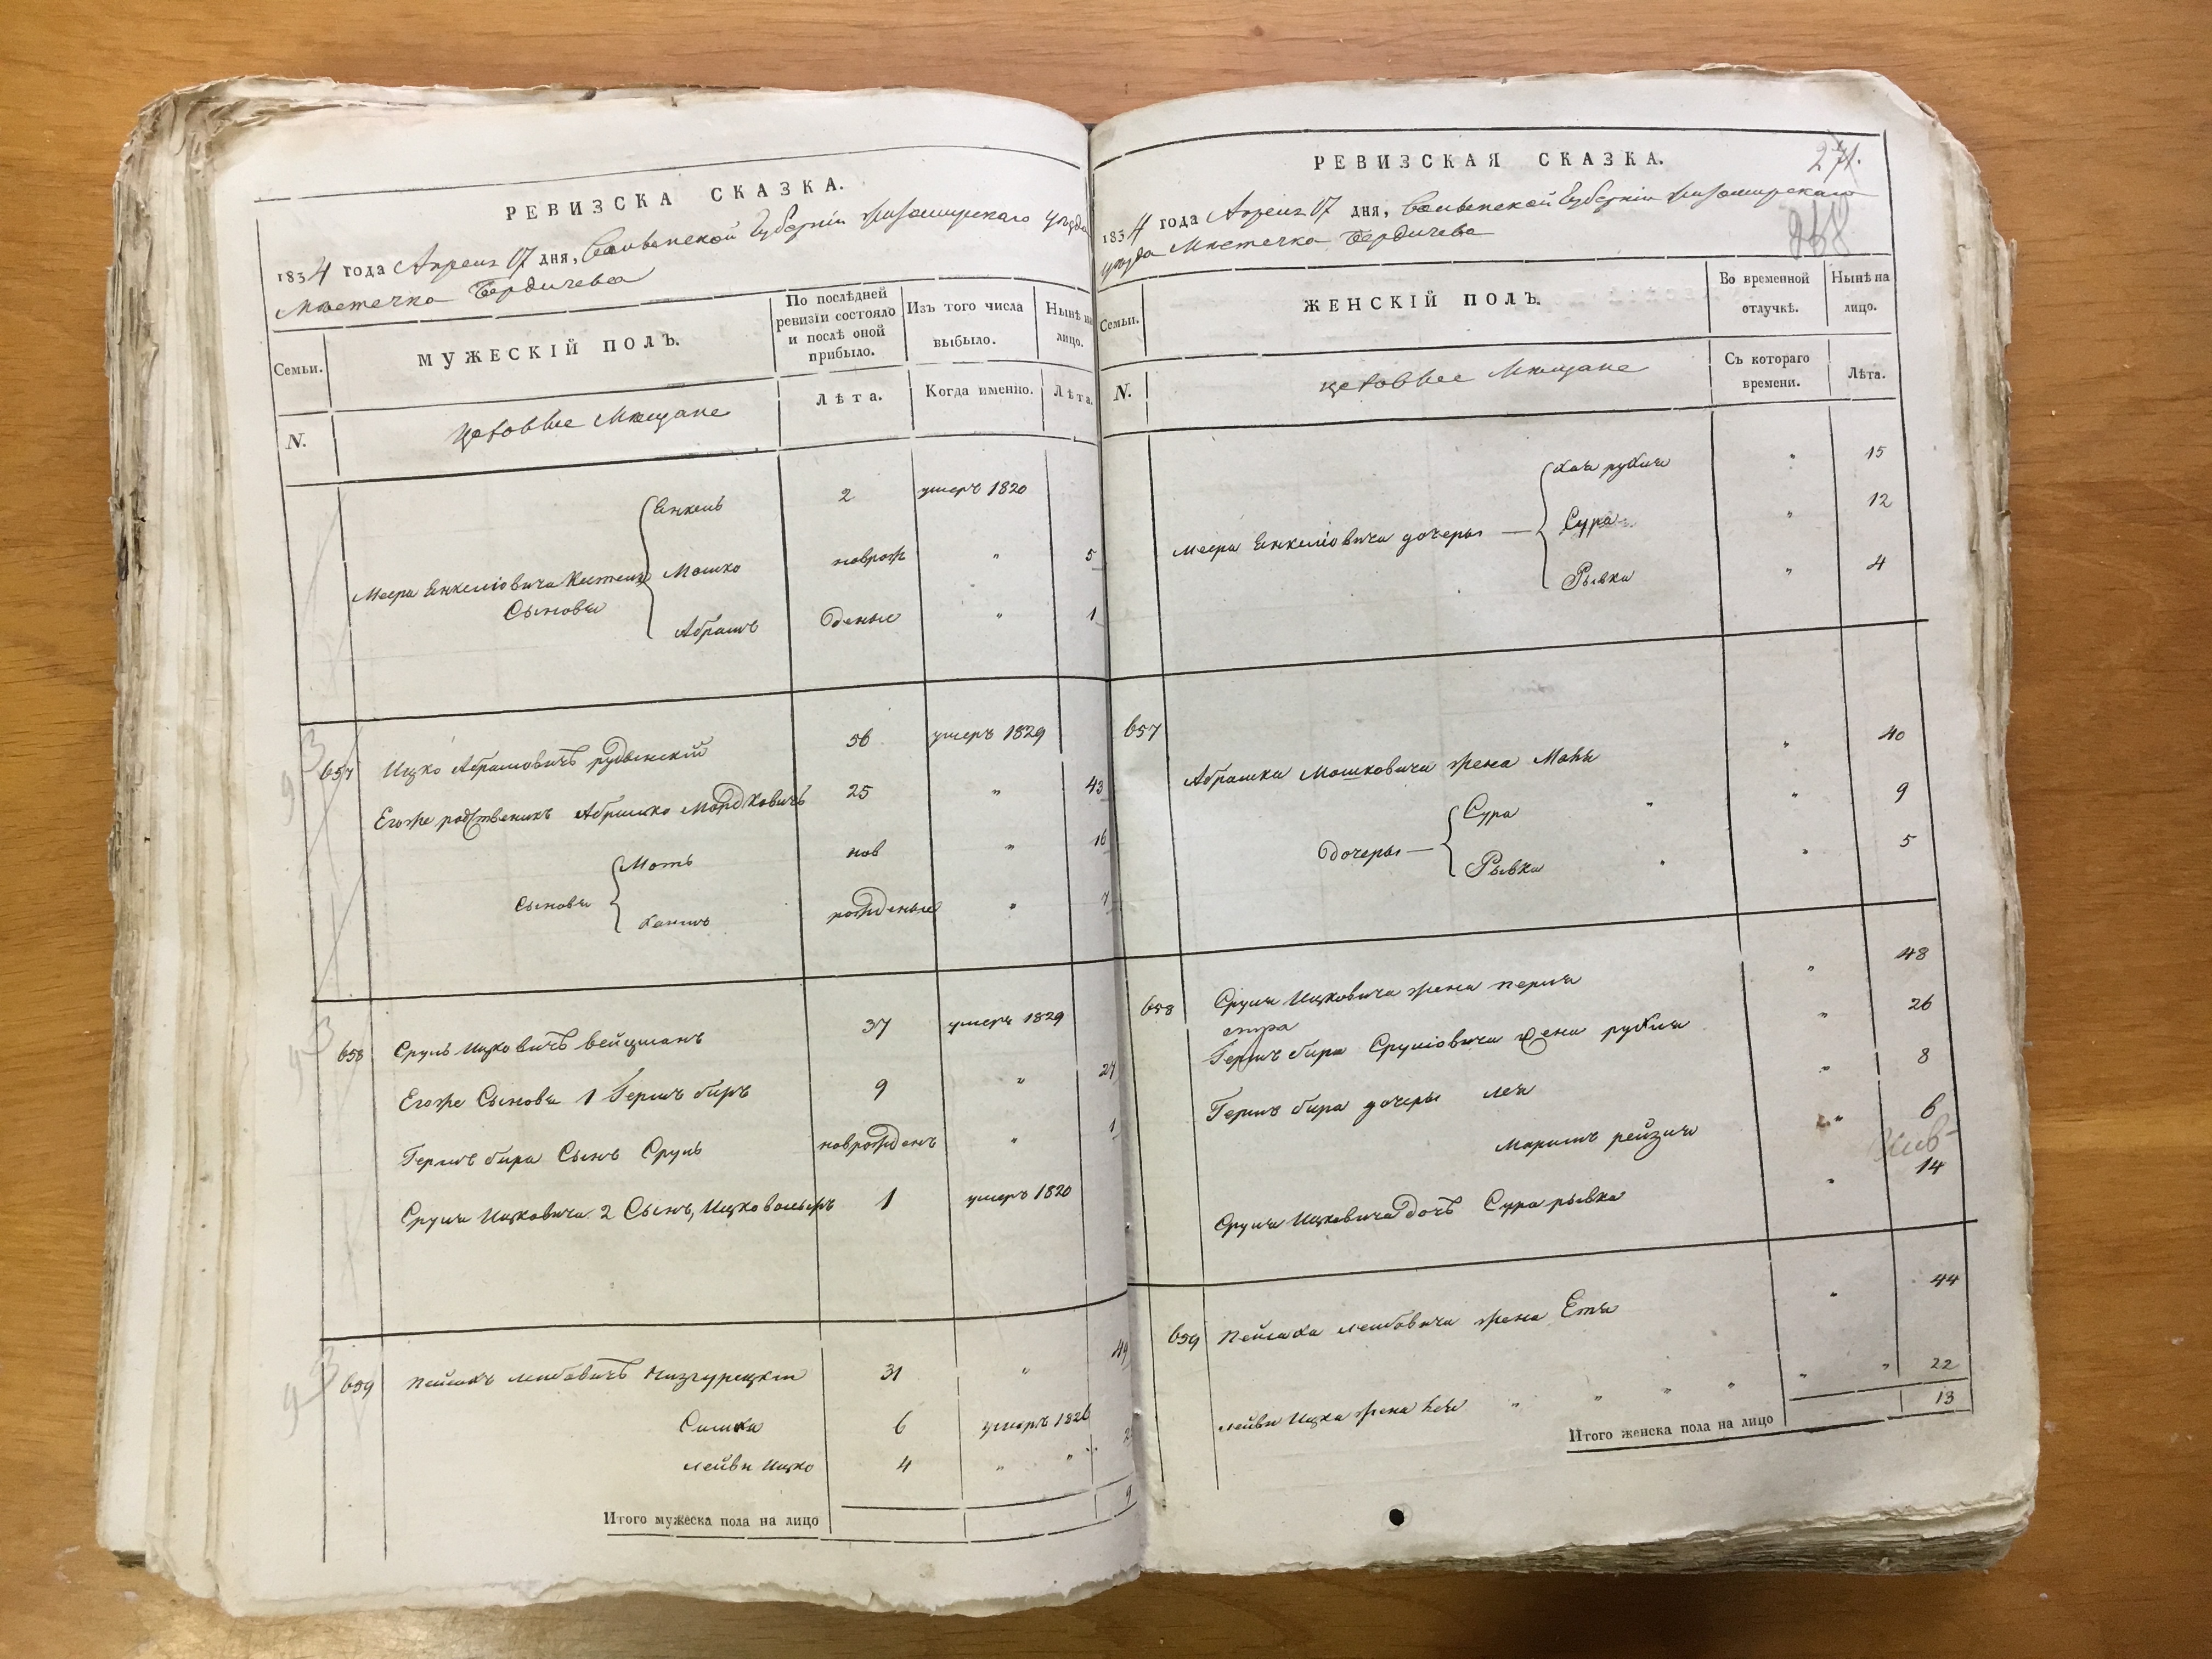 РЕВИЗСКА СКАЗКА.
1834 года Апреля 17 дня, Волынской Губернiи Житомирскаго уезда
Местечка Бердичева
Семьи.
МУЖЕСКIЙ ПОЛЪ.
По послѣдней ревизiи состояло и послѣ оной прибыло.
Изъ того числа выбыло.
Нынѣ на лицо.
N.
Цеховые Мещане
Лѣта.
Когда именно.
Лѣта.
Енкель 2 умеръ 1820
Меера Енкелiовича
Сыновья
Мошко новрож " 5
Абрамъ деные " 1
657 Ицко Абрамовичъ 56 умеръ 1829
Егоже родственикъ Абрашко Мордковичъ 25 " 43
сыновья
Моть нов " 16
рожденые " 7
658 Сруль Ицковичъ Вейцманъ 37 умеръ 1829
Егоже Сыновья 1 Гершъ биръ 9 " 27
Гершъ бира Сынъ Сруль новрожденъ " 1
Сруля Ицковича 2 Сынъ, Ицко 1 умеръ 1820
659 Пейсахъ Лейбовичъ 31 " 49
Симха 6 умеръ 1826
Лейви Ицко 4 " "
Итого мужеска пола на лицо 9
РЕВИЗСКАЯ СКАЗКА.
271.
1834 года Апреля 17 дня, Волынской Губернiи Житомирскаго
уезда Местечка Бердичева
Семьи.
ЖЕНСКIЙ ПОЛЪ.
Во временной отлучкѣ.
Нынѣ на лицо.
N.
Цеховые Мещане
Съ котораго времени.
Лѣта.
Хая рухля " 15
Меера Енкелiовича дочеры
Сура " 12
Рывка " 4
657 Абрашка Мошковича жена Маня " 40
дочеры
Сура " " 9
Рывка " " 5
658 Сруля Ицковича жена перля " 48
Гершъ бира Срулiовича жена рухля " 26
Гершъ бира дочеры лея " 8
Марьимъ рейзля " 6
Сруля Ицковича дочъ Сура рывка " 14
659 Пейсаха Лейбовича жена Етя " 44
Лейви Ицка жена " " " " " " 22
Итого женска пола на лицо 13